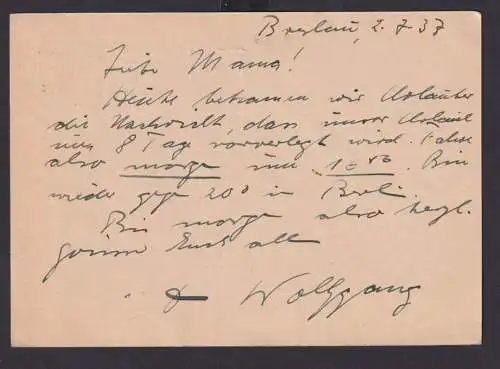 Breslau, 2. 7. 37
Liebe Mama!
Heute bekamen wir Urlauber
die Nachricht, dass unser Urlaub
um 8 Tage vorverlegt wird. Fahre
also morgen um 1
wieder gegen 20⁰ in Berlin.
Bis morgen also herzl.
Euch all
Wolfgang